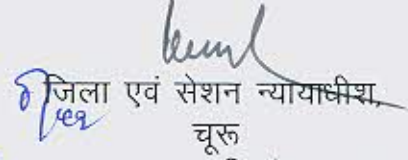 जिला एवं सेशन न्यायाधीश,
चूरू